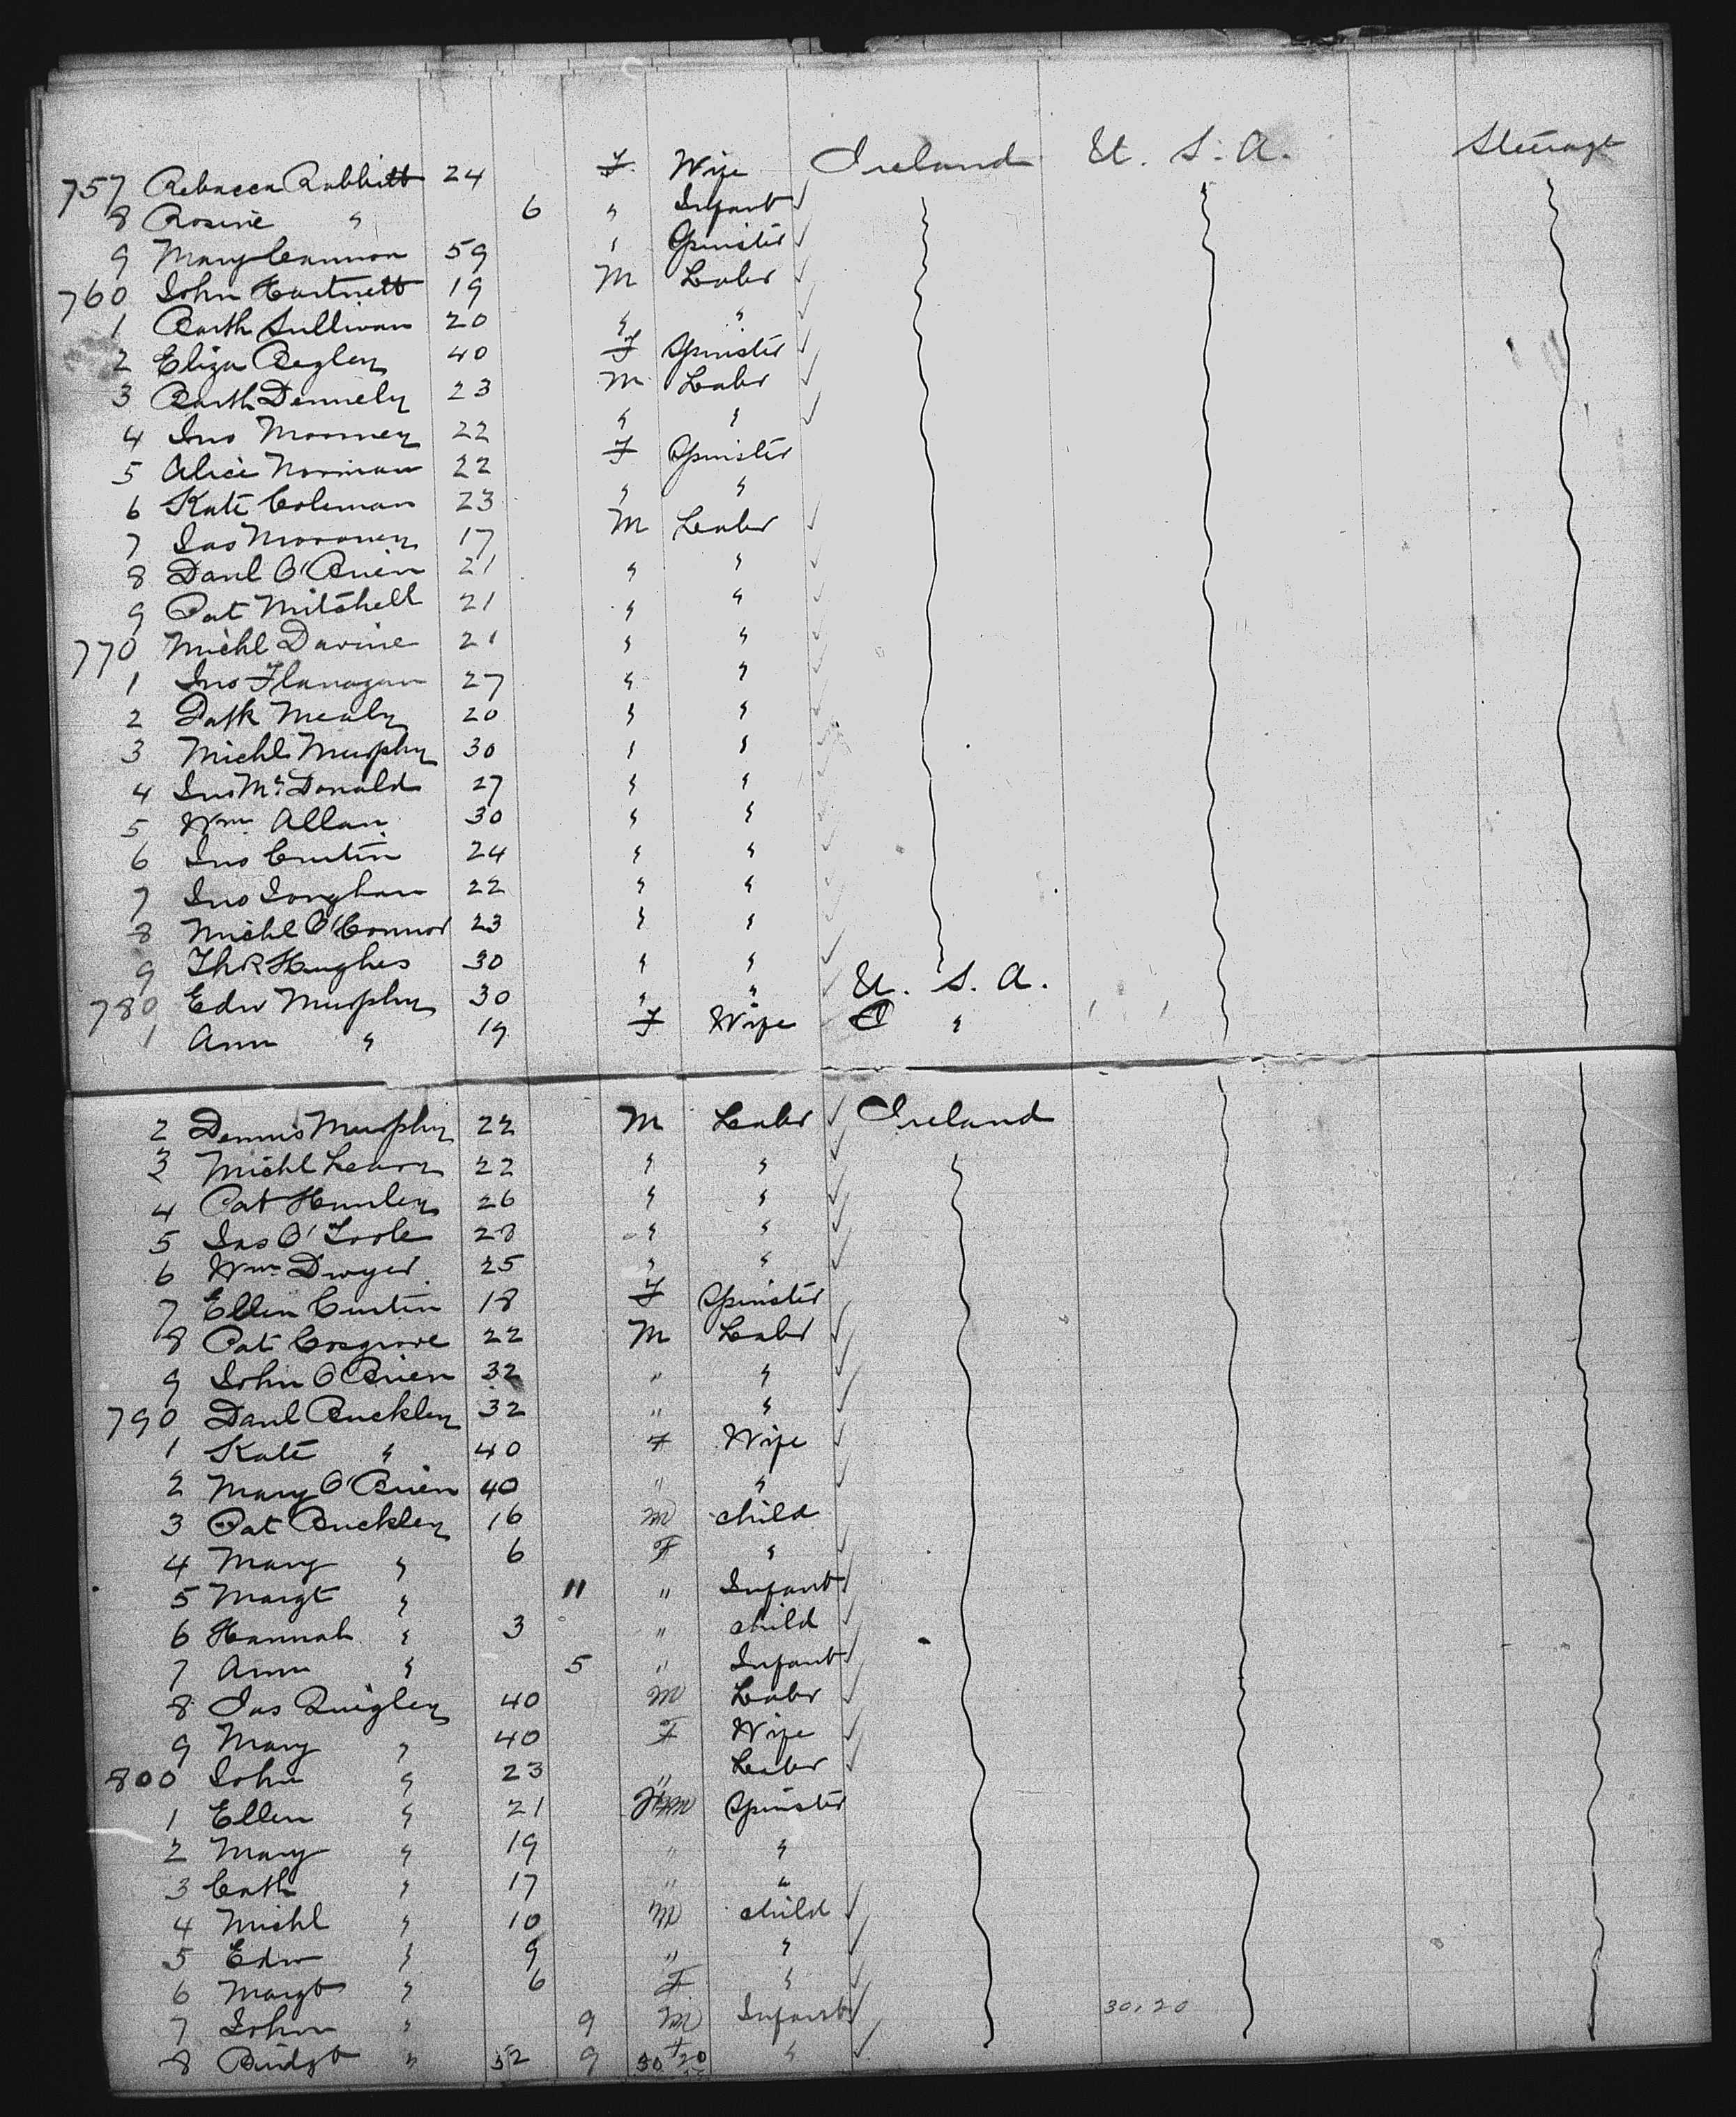 757 Rebacca Rabbitt 24 F Wife Ireland U. S. A. Steerage
8 Rosine " 6 " Infant ✓
9 Mary Cannon 59 " Spinster ✓
760 John Hartnett 19 M Labr ✓
1 Barth Sullivan 20 " " ✓
2 Eliza Begley 40 F Spinster ✓
3 Barth Dennehy 23 M Labr ✓
4 Jno Mooney 22 " " ✓
5 Alice Norman 22 F Spinster
6 Kate Coleman 23 " "
7 Jas Mooney 17 M Labr ✓
8 Danl O'Brien 21 " " ✓
9 Pat Mitchell 21 " " ✓
770 Michl Davine 21 " " ✓
1 Jno Flanagan 27 " " ✓
2 Patk Mealy 20 " " ✓
3 Michl Murphy 30 " " ✓
4 Jno McDonald 27 " " ✓
5 Wm Allan 30 " " ✓
6 Jno Curtin 24 " " ✓
7 Jno Songhan 22 " " ✓
8 Michl O'Connor 23 " " ✓
9 Ths Hughes 30 " " ✓
780 Edw Murphy 30 " " ✓ U. S. A.
1 Ann " 19 F Wife ✓ "
2 Dennis Murphy 22 M Labr ✓ Ireland
3 Michl Leary 22 " " ✓
4 Pat Hurley 26 " " ✓
5 Jas O'Toole 28 " " ✓
6 Wm Dwyer 25 " " ✓
7 Ellen Curtin 18 F Spinster
8 Pat Cosgrove 22 M Labr ✓
9 John O'Brien 32 " " ✓
790 Danl Buckley 32 " " ✓
1 Kate " 40 F Wife ✓
2 Mary O'Brien 40 " " ✓
3 Pat Buckley 16 M child
4 Mary " 6 F " ✓
5 Margt " 11 " Infant ✓
6 Hannah " 3 " child ✓
7 Ann " 5 " Infant ✓
8 Jas Quigley 40 M Labr ✓
9 Mary " 40 F Wife ✓
800 John " 23 " Labr ✓
1 Ellen " 21 Spinster
2 Mary " 19 " "
3 Cath " 17 " "
4 Michl " 10 M child ✓
5 Edw " 9 " " ✓
6 Margt " 6 F " ✓
7 John " 9 M Infant ✓ 30,20
8 Bridgt " 52 9 30 20 " ✓